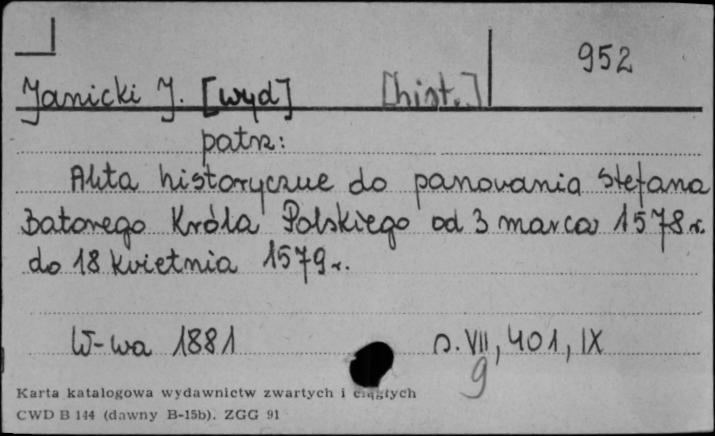 952
Janicki J. [wyd] [hist.]
patrz:
Akta historyczne do panowania Stefana
Batorego Króla Polskiego od 3 marca 1578 r.
do 18 kwietnia 1579 r.
W-wa 1881 s. VII, 401, IX
9
Karta katalogowa wydawnictw zwartych i ciągłych
CWD B 144 (dawny B-15b). ZGG 91